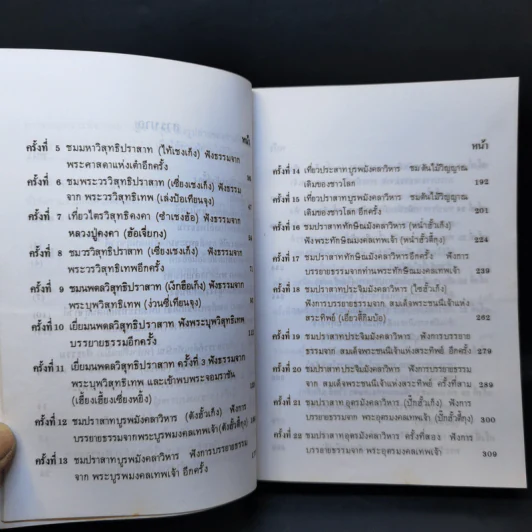 หน้า
ครั้งที่ 5 ชมมหาวิสุทธิปราสาท (ไท้เชงเก็ง) ฟังธรรมจาก
พระศาสดาแห่งเต๋าอีกครั้ง
ครั้งที่ 6 ชมพระวรวิสุทธิปราสาท (เซี่ยงเชงเก็ง) ฟังธรรม
จาก พระวรวิสุทธิเทพ (เล่งป้อเทียนจุง)
ครั้งที่ 7 เที่ยวไตรวิสุทธิคงคา (ซำเชงฮ้อ) ฟังธรรมจาก
หลวงปู่คงคา (ฮ้อเจี่ยกง)
ครั้งที่ 8 ชมวรวิสุทธิปราสาท (เซี่ยงเชงเก็ง) ฟังธรรมจาก
พระวรวิสุทธิเทพอีกครั้ง
ครั้งที่ 9 ชมนพดลวิสุทธิปราสาท (เง็กฮือเก็ง) ฟังธรรมจาก
พระบุพวิสุทธิเทพ (ง่วนซี่เทียนจุง)
ครั้งที่ 10 เยี่ยมนพดลวิสุทธิปราสาท ฟังพระบุพวิสุทธิเทพ
บรรยายธรรมอีกครั้ง
ครั้งที่ 11 เยี่ยมนพดลวิสุทธิปราสาท ครั้งที่ 3 ฟังธรรมจาก
พระบุพวิสุทธิเทพ และเจ้าพบพระจอมราชัน
(เฮี้ยงเฮี้ยงเซี่ยงหยิ่ง)
ครั้งที่ 12 ชมปราสาทบูรพมังคลาวิหาร (ตังฮั้วเก็ง) ฟังการ
บรรยายธรรมจากพระบูรพมงคลเทพเจ้า(ตังฮั้วตี้กุง)
ครั้งที่ 13 ชมปราสาทบูรพมังคลาวิหาร ฟังการบรรยายธรรม
จาก พระบูรพมงคลเทพเจ้า อีกครั้ง
หน้า
ครั้งที่ 14 เที่ยวปราสาทบูรพมังคลาวิหาร ชมต้นไม้วิญญาณ
เดิมของชาวโลก 192
ครั้งที่ 15 เที่ยวปราสาทบูรพมังคลาวิหาร ชมต้นไม้วิญญาณ
เดิมของชาวโลก อีกครั้ง 201
ครั้งที่ 16 ชมปราสาททักษิณมังคลาวิหาร (หน่ำฮั้วเก็ง)
ฟังพระทักษิณมงคลเทพเจ้า (หน่ำฮั้วตี้กุง) 224
ครั้งที่ 17 ชมปราสาททักษิณมังคลาวิหารอีกครั้ง ฟังการ
บรรยายธรรมจากท่านพระทักษิณมงคลเทพเจ้า 239
ครั้งที่ 18 ชมปราสาทประจิมมังคลาวิหาร (ไซฮั้วเก็ง)
ฟังการบรรยายธรรมจาก สมเด็จพระชนนีเจ้าแห่ง
สระทิพย์ (เอี่ยวตี้กิมบ้อ) 262
ครั้งที่ 19 ชมปราสาทประจิมมังคลาวิหาร ฟังการบรรยาย
ธรรมจากสมเด็จพระชนนีเจ้าแห่งสระทิพย์ อีกครั้ง 279
ครั้งที่ 20 ชมปราสาทประจิมมังคลาวิหาร ฟังการบรรยายธรรม
จาก สมเด็จพระชนนีเจ้าแห่งสระทิพย์ ครั้งที่สาม 289
ครั้งที่ 21 ชมปราสาทอุตรมังคลาวิหาร (ปั๊กฮั้วเก็ง) ฟังการ
บรรยายธรรมจาก พระอุตรมงคลเทพเจ้า (ปั๊กฮั้วตี้กุง) 300
ครั้งที่ 22 ชมปราสาทอุตรมังคลาวิหาร ครั้งที่สอง ฟังการ
บรรยายธรรมจาก พระอุตรมงคลเทพเจ้า 309